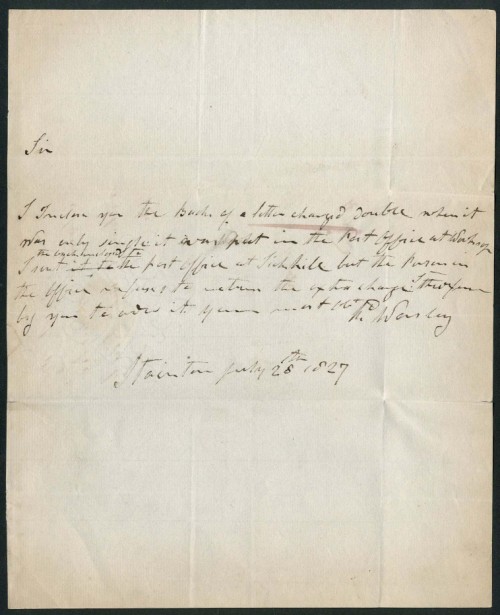 Sir
I Inclose you the Back of a letter charged double when it
was only single it was put in the Post Office at Worksop
the enclosed to
I sent it to the post Office at Tickhill but the Person in
the Office refuses to return the extra charge I therefore
by you to your most Obt
R Worsley
Stainton July 28th 1827